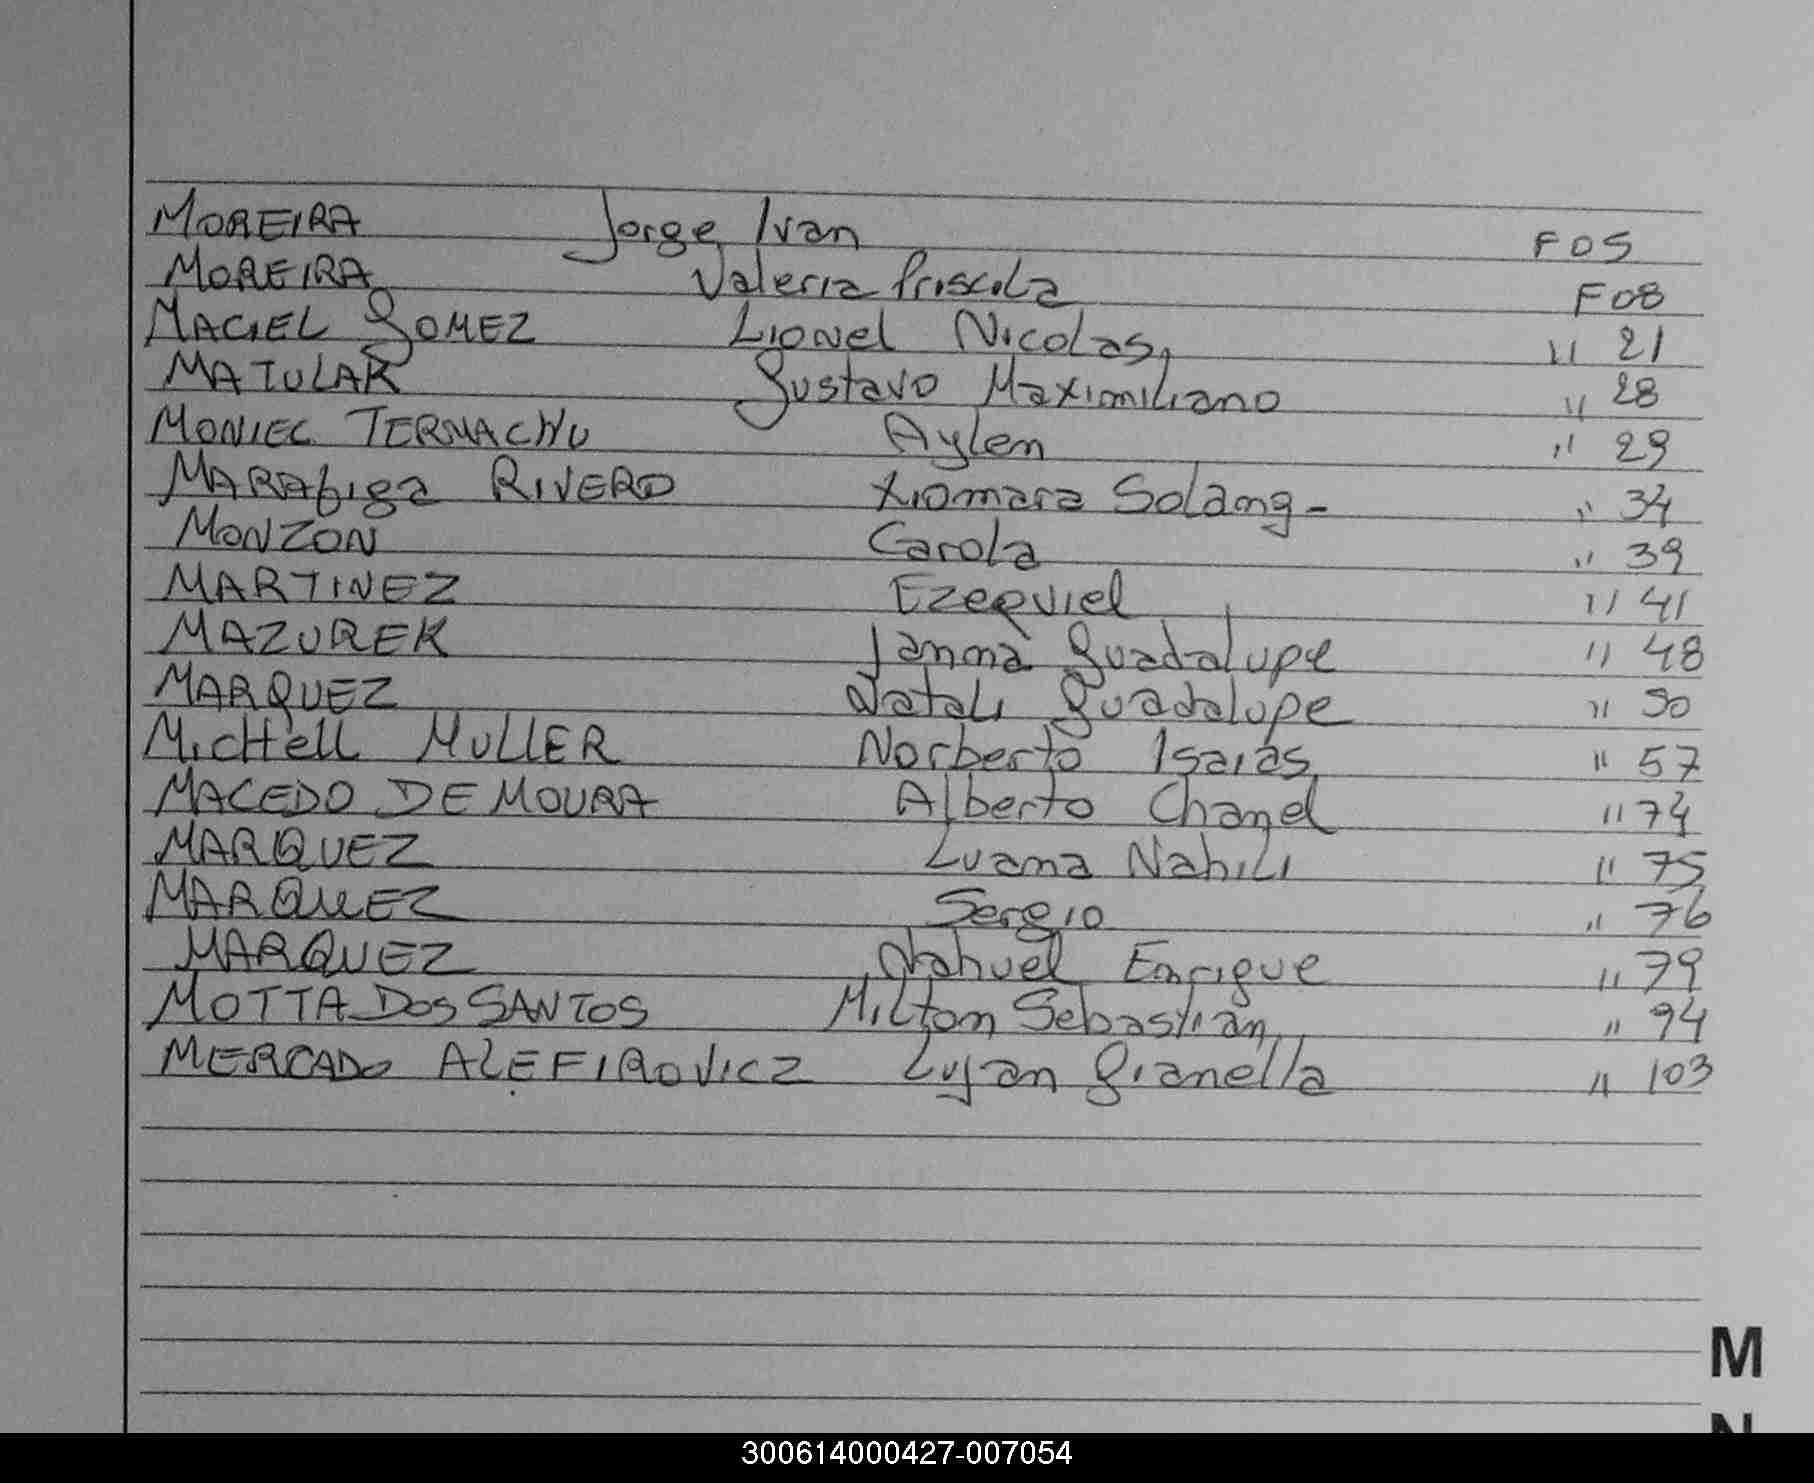 MOREIRA Jorge Ivan F 05
MOREIRA Valeria Priscila F 08
MACIEL GOMEZ Lionel Nicolas, " 21
MATULAK Gustavo Maximiliano " 28
MONIEC TERMACHU Aylen " 29
MARAfiga RIVERO Xiomara Solang - " 34
MONZON Carola " 39
MARTINEZ Ezequiel " 41
MAZUREK Janina Guadalupe " 48
MARQUEZ Natali Guadalupe " 50
MicHell MULLER Norberto Isaias " 57
MACEDO DE MOURA Alberto Chanel " 74
MARQUEZ Luana Nahili " 75
MARQUEZ Sergio " 76
MARQUEZ Nahuel Enrique " 79
MOTTA DOS SANTOS Milton Sebastian " 94
MERCADO ALEFIROVICZ Lujan Gianella " 103
M
N
300614000427-007054